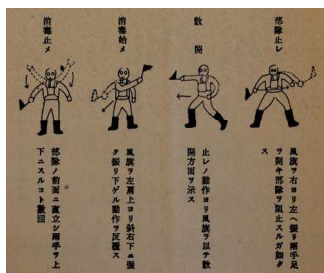 部隊止レ
風旗ヲ右ヨリ左ヘ振リ兩手足
ヲ開キ部隊ヲ阻止スルガ如タ
ス
散開
止レノ動作ヨリ風旗ヲ以テ散
開方面ヲ示ス
消毒始メ
風旗ヲ左肩上ヨリ斜右下ニ强
ク振リ下ゲル動作ヲ反覆ス
消毒止メ
部隊ノ前面ニ直立シ兩手ヲ上
下ニスルコト數回